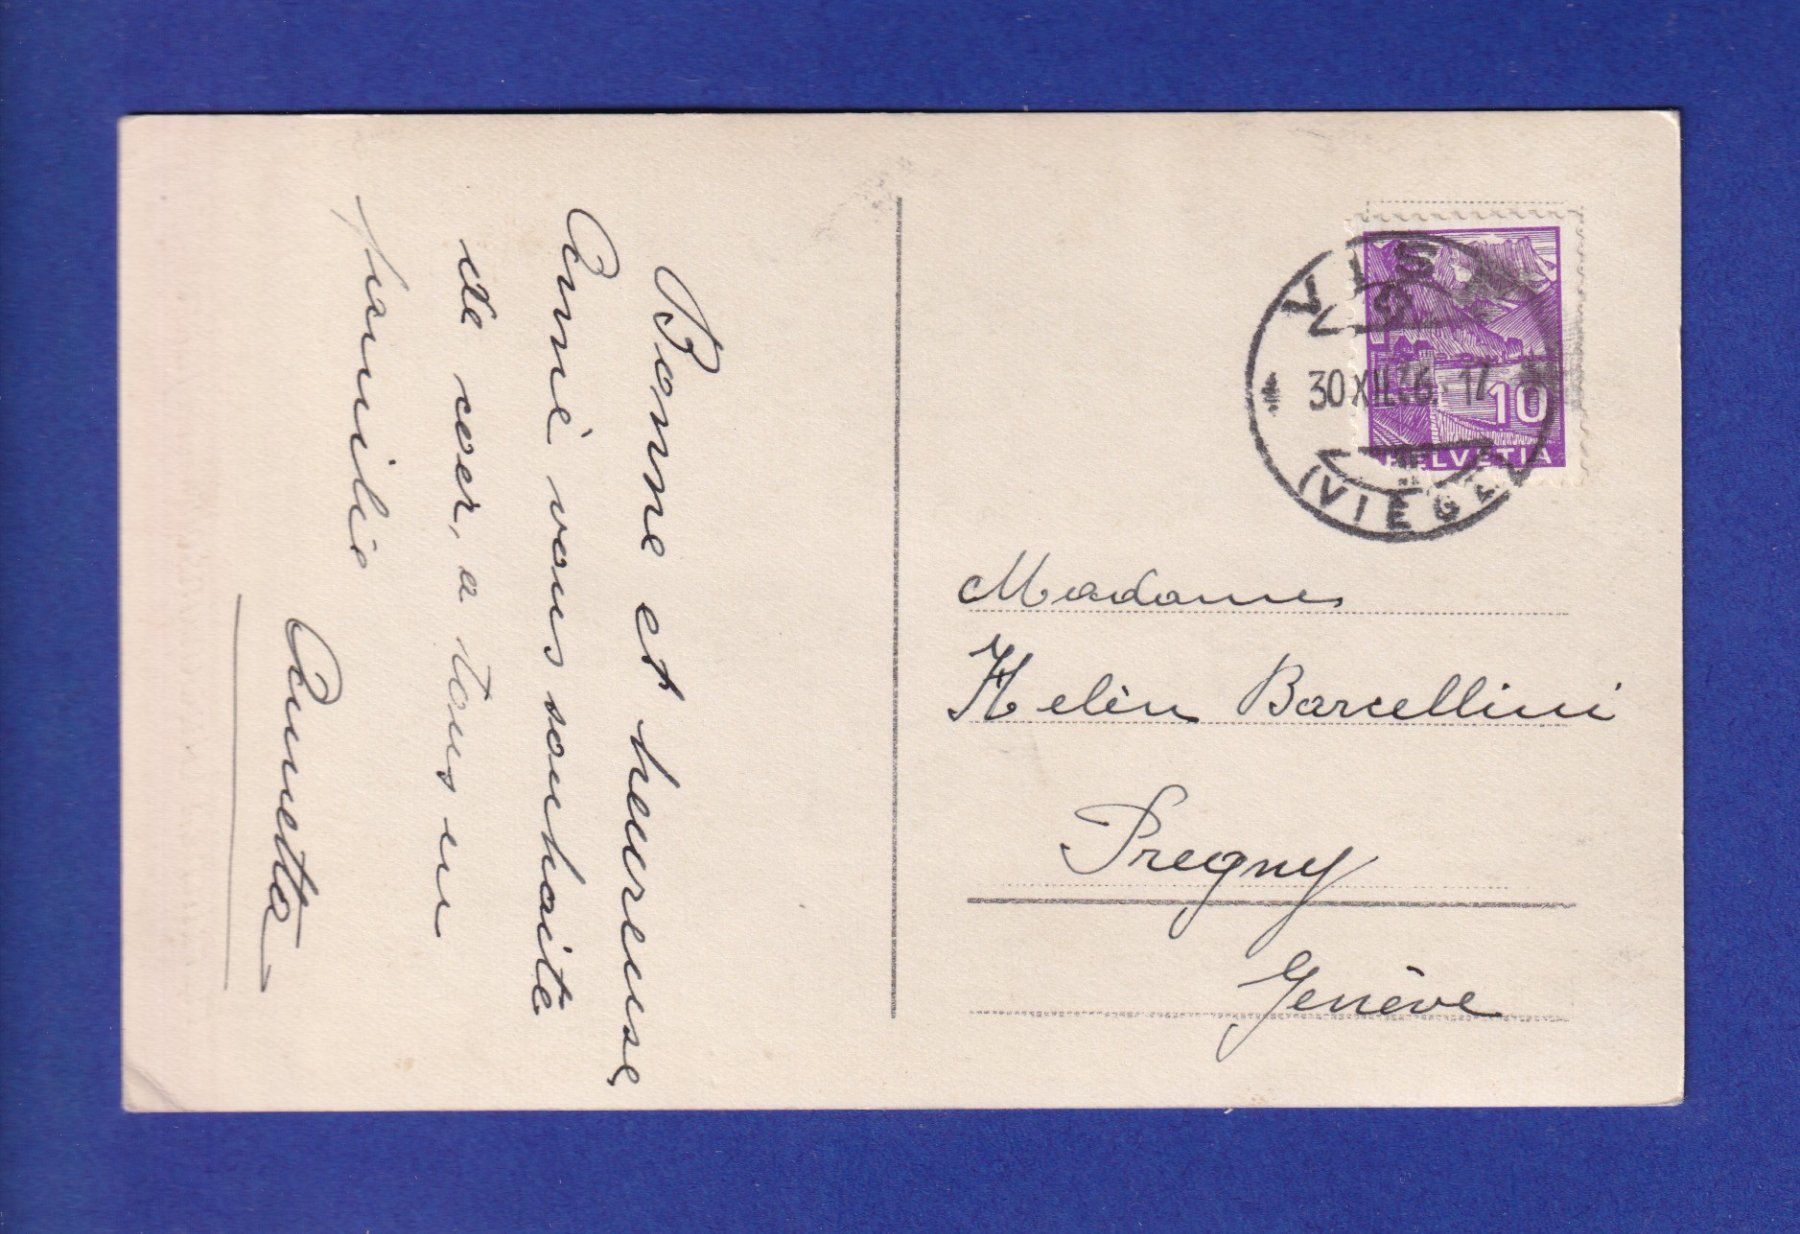 Bonne et heureuse,
Anné vous souhaite
de coer, a tous en
familie
Annetta
VISP
9
30.XII.36. 17
(VIÈGE)
10
HELVETIA
Madame
Helèn Barcellini
Pregny
Genève